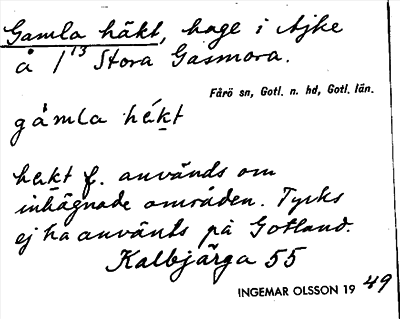 Gamla häkt, hage i Ajke
å 1¹³ Stora Gasmora.
Fårö sn, Gotl. n. hd, Gotl. län.
gå̀mla hék̲t
hek̲t f. används om
inhägnade områden. Tycks
ej ha använts på Gotland.
Kalbjärga 55
INGEMAR OLSSON 19 49